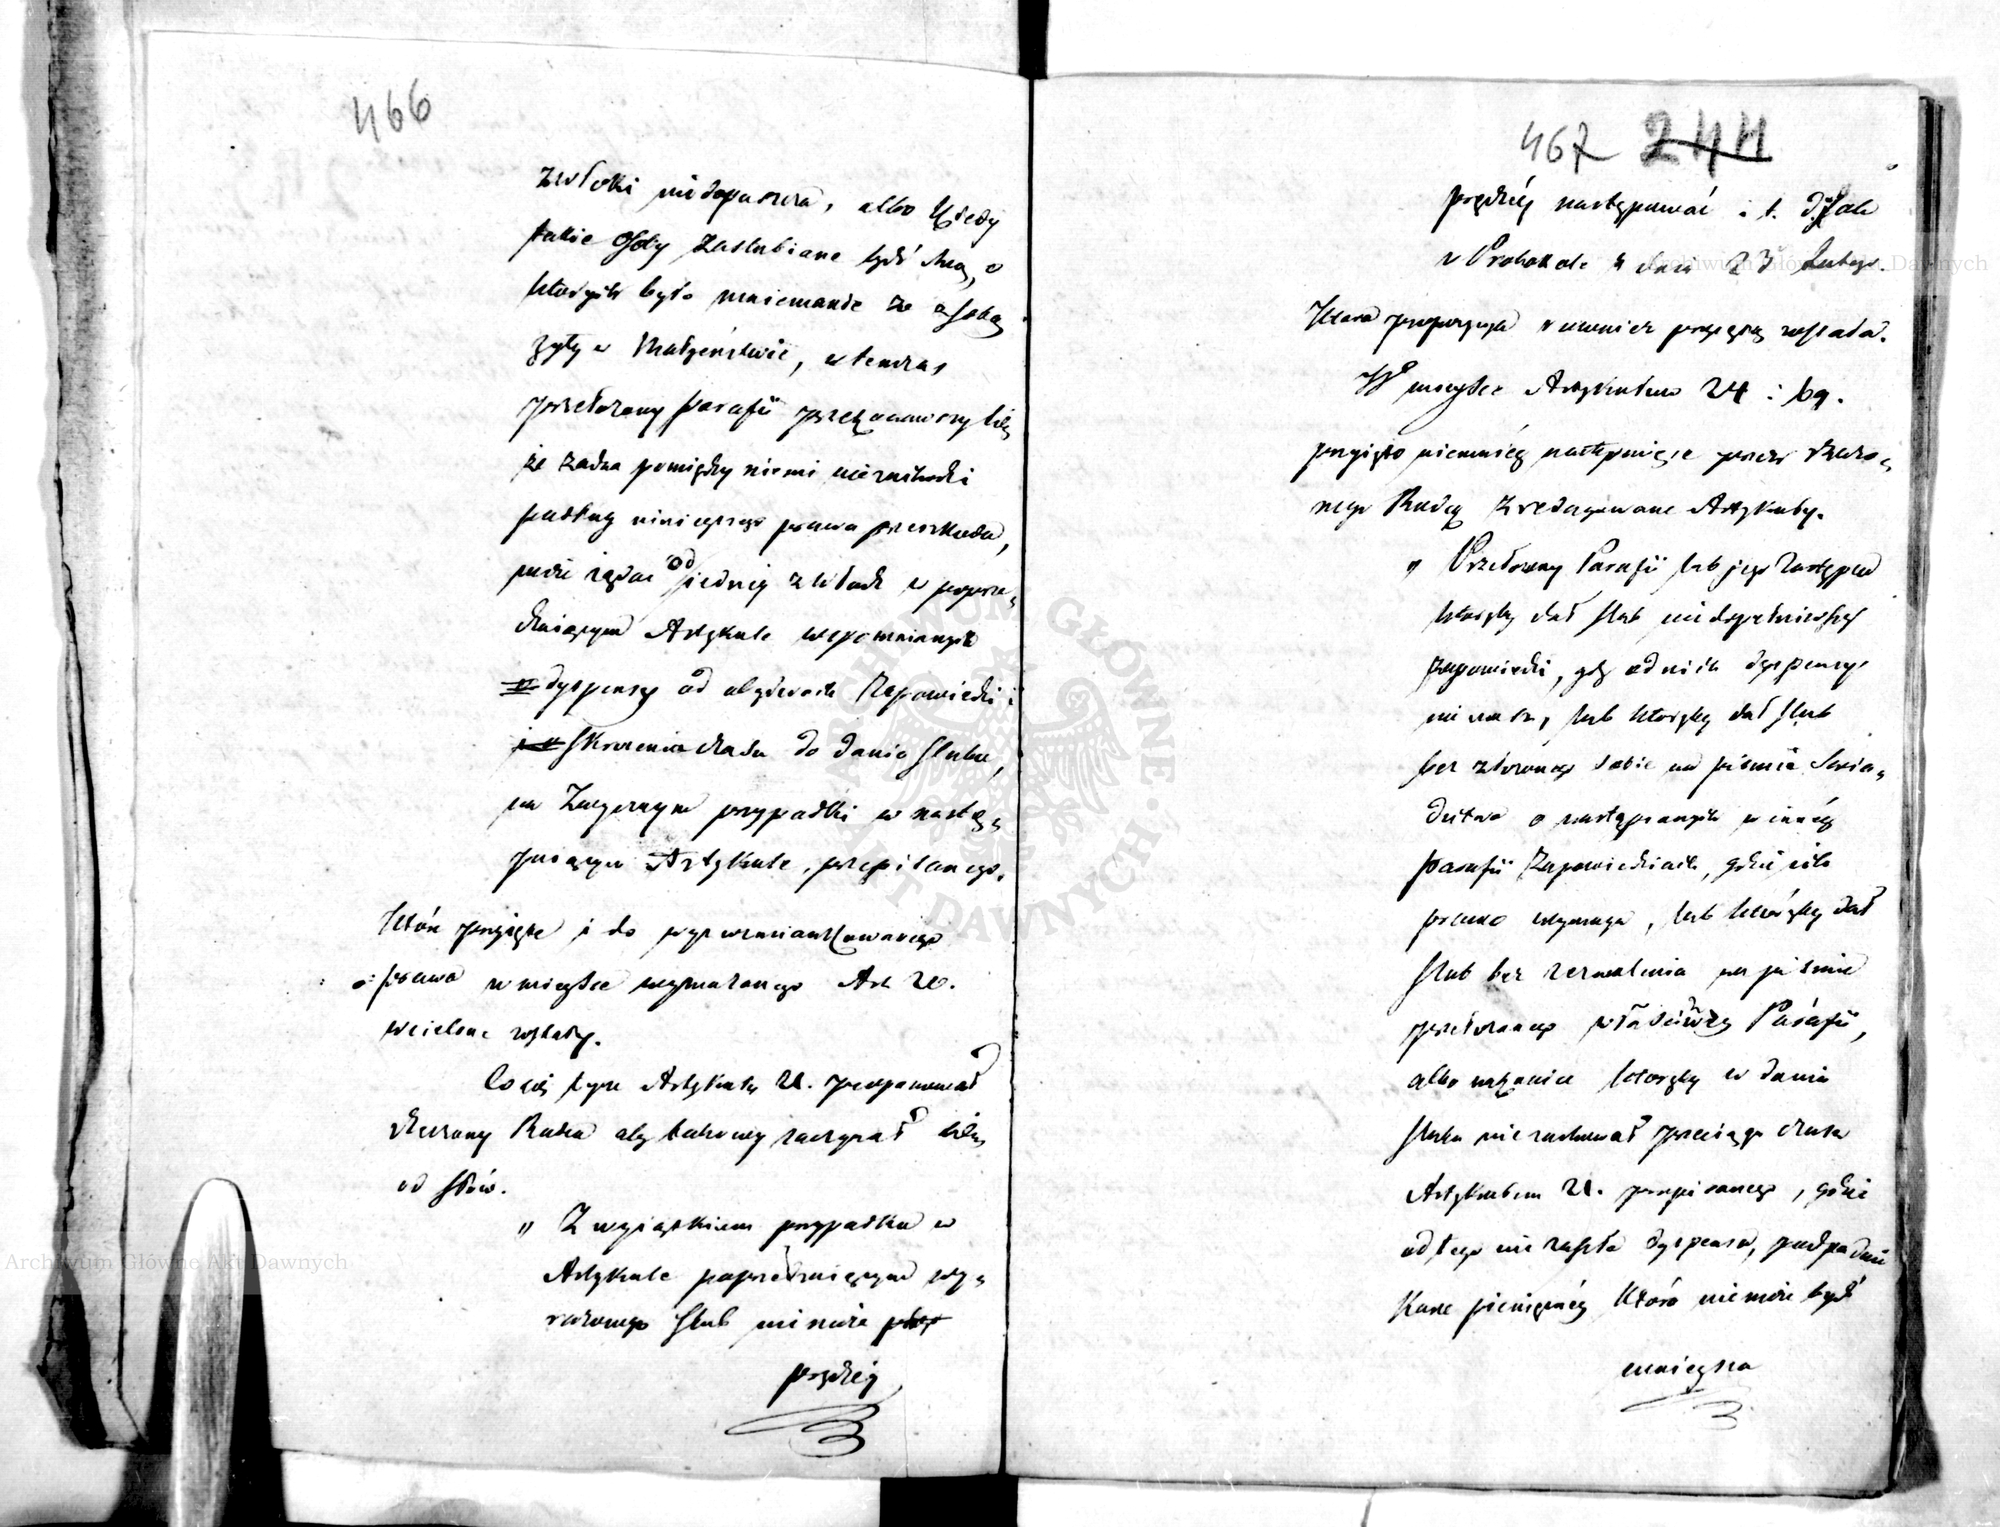 466
zwłoki niedopuszcza, albo kiedy
takie osoby zaślubiane bydź chcą, o
których było mniemanie że z sobą
żyły w Małżeństwie, wtenczas
przełożony parafii przekonawszy się
że żadna pomiędzy niemi niezachodzi
podług niniejszego prawa przeszkoda,
może żądać od jednej z władz w poprze„
dzającym Artykule wspomnianych
dyspensy od obydwóch Zapowiedzi i
skrócenia czasu do dania ślubu,
na zwyczajne przypadki w nastę„
pującym Artykule, przepisanego.
które przyjęte i do wyż wzmiankowanego
prawa w miejsce wymazanego Art 20.
wcielone zostały.
Co się tycze Artykułu 21. proponował
Rzeczony Radca aby takowy zaczynał się
od słów.
„ Z wyjątkiem przypadku w
Artykule poprzedzającym wy„
rażonego ślub nie może
prędzéj
467 244
prędzéj następować i t. d. jak
w Protokole z dnia 23 Lutego.
Która propozycya również przyjętą została.
W miejsce Artykułów 24 i 69.
przyjęto niemniéj następujące przez rzeczo„
nego Radcę zredagowane Artykuły.
„ Przełożony Parafii lub jego zastępca
któryby dał ślub niedopełniwszy
zapowiedzi, gdy od nich dyspensy
nie masz, lub któryby dał ślub
bez złożonego sobie na piśmie świa„
dectwa o nastąpionych w innéj
parafii Zapowiedziach, gdzie ich
prawo wymaga, lub któryby dał
ślub bez zezwolenia na piśmie
przełożonego właściwéj Parafii,
albo nakoniec któryby w daniu
ślubu nie zachował przeciągu czasu
Artykułem 21. przepisanego, gdzie
od tego nie zaszła dyspensa, podpadnie
Karze pieniężnéj która nie może bydź
mniejsza
Archiwum Główne Akt Dawnych
Archiwum Główne Akt Dawnych
ARCHIWUM GŁÓWNE AKT DAWNYCH